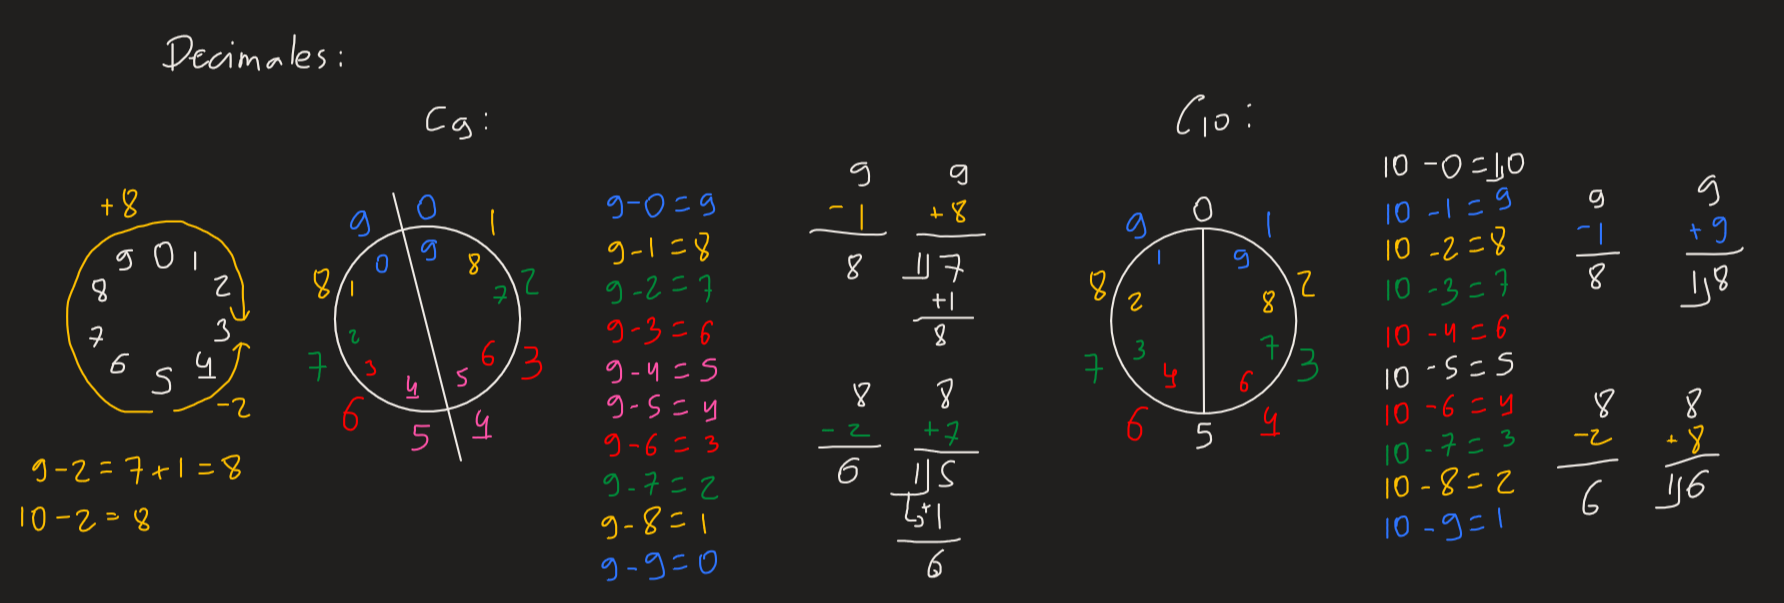 Decimales:
C9:
C10:
+8
9 0 1
8 2
7 3
6 5 4
-2
9-2=7+1=8
10-2=8
9 0 1
8 2
7 3
6 5 4
0 9 8
1 7
2 6
3 4 5
9-0=9
9-1=8
9-2=7
9-3=6
9-4=5
9-5=4
9-6=3
9-7=2
9-8=1
9-9=0
9
-1
8
9
+8
1)7
+1
8
8
-2
6
8
+7
1)5
+1
6
9 0 1
8 2
7 3
6 5 4
1 9
2 8
3 7
4 6
10-0=10
10-1=9
10-2=8
10-3=7
10-4=6
10-5=5
10-6=4
10-7=3
10-8=2
10-9=1
9
-1
8
9
+9
1)8
8
-2
6
8
+8
1)6